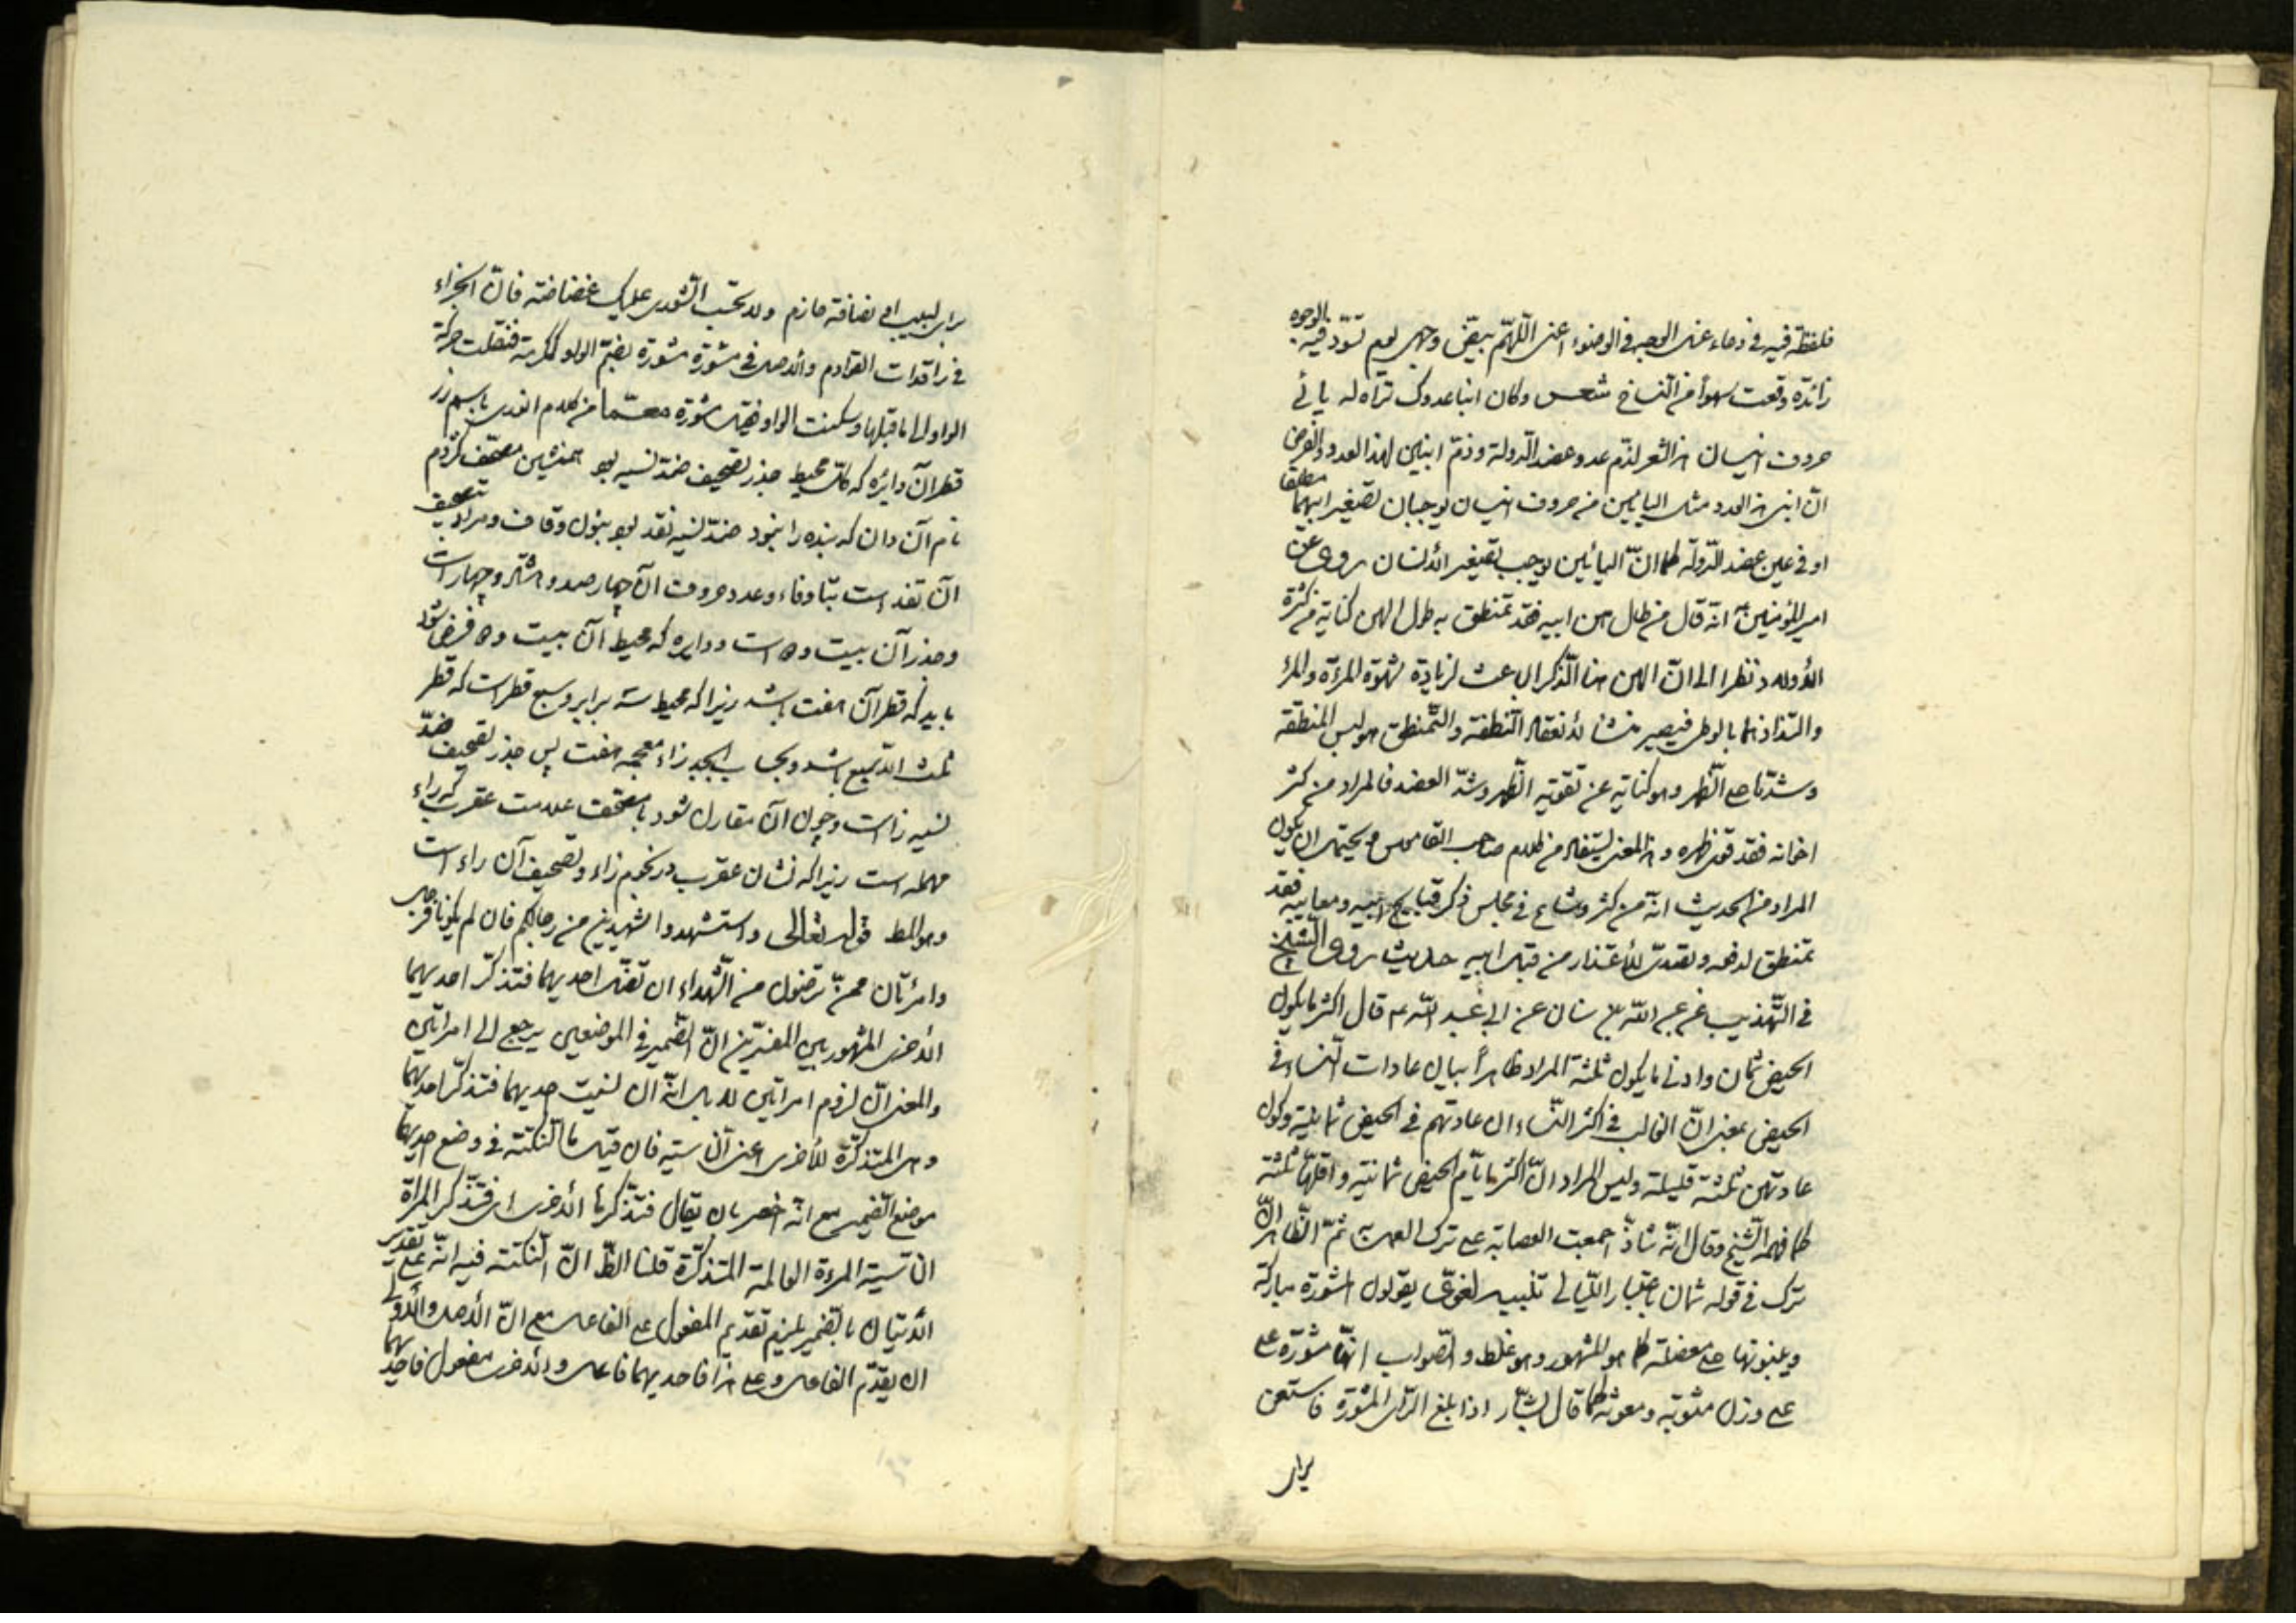 فلفظة فيه في دعاء غسل الوجه في الوضوء اعنى اللهم بيض وجهى يوم تسود فيه الوجوه
زائدة وقعت سهوا من النساخ شعر وكان ابنا عدوك تراه له يائى
حروف انيسان هذا الشعر لذم عدو عضد الدولة وذم ابنين لهذا العدو والغرض
ان ابنى هذا العدو مثل اليائين من حروف انيسان يوجبان تصغير ابيهما مطلقا
او في عين عضد الدولة كما ان اليائين يوجب تصغير الانسان روى عن
امير المؤمنين انه قال من طال هن ابيه فقد تمنطق به طول الهن كناية من كثرة
الاولاد نظرا الى ان الهن هنا الذكر الباعث لزيادة شهوة المرءة والمرء
والتذاذهما بالوطى فيصير منشا لانعقاد النطفة والتمنطق هو لبس المنطقة
وشدها على الظهر وهو كناية عن تقوية الظهر وشد العضد فالمراد من كثر
اخوانه فقد قوى ظهره وهذا المعنى يستفاد من كلام صاحب القاموس ويحتمل ان يكون
المراد من الحديث انه من كثر وشاع في مجلس ذكر قبايح ابيه ومعايبه فقد
تمنطق لدفعه وتصدى للاعتذار من قبل ابيه حديث روى الشيخ
في التهذيب عن عبد الله بن سنان عن ابى عبد الله ع قال اكثر ما يكون
الحيض ثمان وادنى ما يكون ثلثة المراد ظاهرا بيان عادات النساء في
الحيض بمعنى ان الغالب في اكثر النساء ان عادتهم في الحيض ثمانية وكون
عادتهن ثلثة قليلة وليس المراد ان اكثر ايام الحيض ثمانية واقلها ثلثة
كما فهمه الشيخ وقال انه شاذ اجمعت العصابة على ترك العمل به ثم الظاهر ان
ترك في قوله ثمان باعتبار الليالى تنبيه لغوى يقولون المشورة مباركة
ويبنونها على مفعلة كما هو المشهور وهو غلط والصواب انها مشورة على
على وزن مثوبة ومعونة كما قال بشار اذا بلغ الراى المشورة فاستعن
براى
براى لبيب او نصافة حازم ولا تحسب الشورى عليك غضاضة فان الجزاء
في راقدات القوادم والاصل في مشورة مشورة بضم الواو كمكرمة فنقلت حركة
الواو الى ما قبلها وسكنت الواو فقيل مشورة معما من كلام انورى باسم زر
قطر آن دايره كه كاش محيط جذر تصحيف ضد نسيه بود همنشين مصحف كژدم
نام آن دان كه بنده را بنمود ضد نسيه نقد بود بنون وقاف ومراد تصحيف
آن تفد است بتا وفاء وعدد حروف آن چهارصد وهشتاد وچهار است
وجذر آن بيست ودو است ودايره كه محيط آن بيست ودو فرض شود
بايد كه قطر آن هفت باشد زيرا كه محيط سه برابر وسبع قطر است كه قطر
ثلث الا سبع باشد وبحساب ابجد زاء معجمه هفت پس جذر تصحيف ضد
نسيه زا است وچون آن مقارن شود با مصحف علامت عقرب كه راء
مهمله است زيرا كه نشان عقرب در نجوم زاء وتصحيف آن راء است
وهو المط قوله تعالى واستشهدوا شهيدين من رجالكم فان لم يكونا فرجل
وامرءتان ممن ترضون من الشهداء ان تضل احديهما فتذكر احديهما
الاخرى المشهور بين المفسرين ان الضمير في الموضعين يرجع الى امراتين
والمعنى ان لزوم امراتين لا بل انه ان نسيت احديهما فتذكر احديهما
وهى المتذكرة للاخرى اعنى الناسية فان قيل ما النكتة في وضع احديهما
موضع الضمير مع انه اخصر بان يقال فتذكرها الاخرى اى فتذكر المراة
الناسية المرءة العالمة المتذكرة قلنا الظ ان النكتة فيه انه على تقدير
الاتيان بالضمير يلزم تقديم المفعول على الفاعل مع ان الاصل والاولى
ان يقدم الفاعل وعلى هذا فاحديهما فاعل والاخرى مفعول فاحديهما